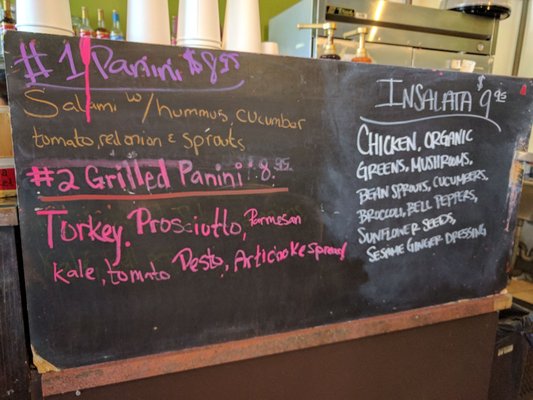 #1 Panini $8.95
Salami w/hummus, cucumber
tomato, red onion & sprouts
#2 Grilled Panini $8.95
Torkey. Prosciutto, Parmesan
kale, tomato Pesto, Artichoke spread
INSALATA $9.95
CHICKEN, ORGANIC
GREENS, MUSHROOMS,
BEAN SPROUTS, CUCUMBERS.
BROCCOLI, BELL PEPPERS,
SUNFLOWER SEEDS,
SESAME GINGER DRESSING